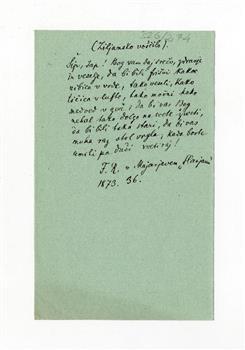 (Ziljansko voščilo).
Šip, šap! Bog vam daj srečo, zdravje
in veselje, da bi bili frišni kakor
ribica v vode, tako veseli, kako
tičica v lufte, tako močni kako
medved v gori; da bi vas Bog
nehal tako dolgo na svete živeti,
da bi bili tako stari, da bi vas
muha raz stol vrgla, kada boste
umrli pa duši sveti raj!
F. R. v Majarjevem „Slavjanu"
1873. 36.